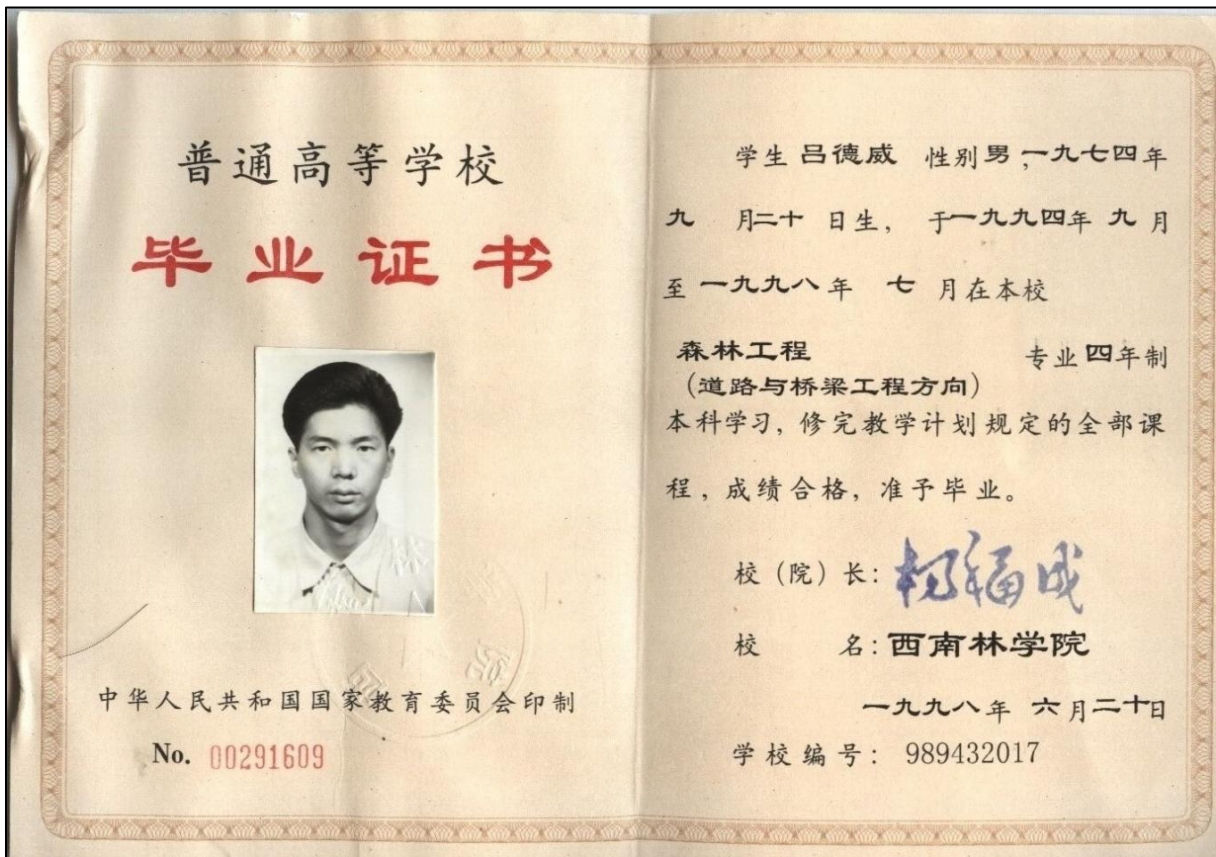 普通高等学校
毕业证书
中华人民共和国国家教育委员会印制
No. 00291609
学生 吕德威 性别 男,一九七四年
九 月二十 日生, 于一九九四年 九月
至 一九九八年 七 月在本校
森林工程 专业 四年制
(道路与桥梁工程方向)
本科学习, 修完教学计划规定的全部课
程, 成绩合格, 准予毕业。
校 (院) 长: 杨福成
校 名: 西南林学院
一九九八年 六月二十日
学校编号: 989432017